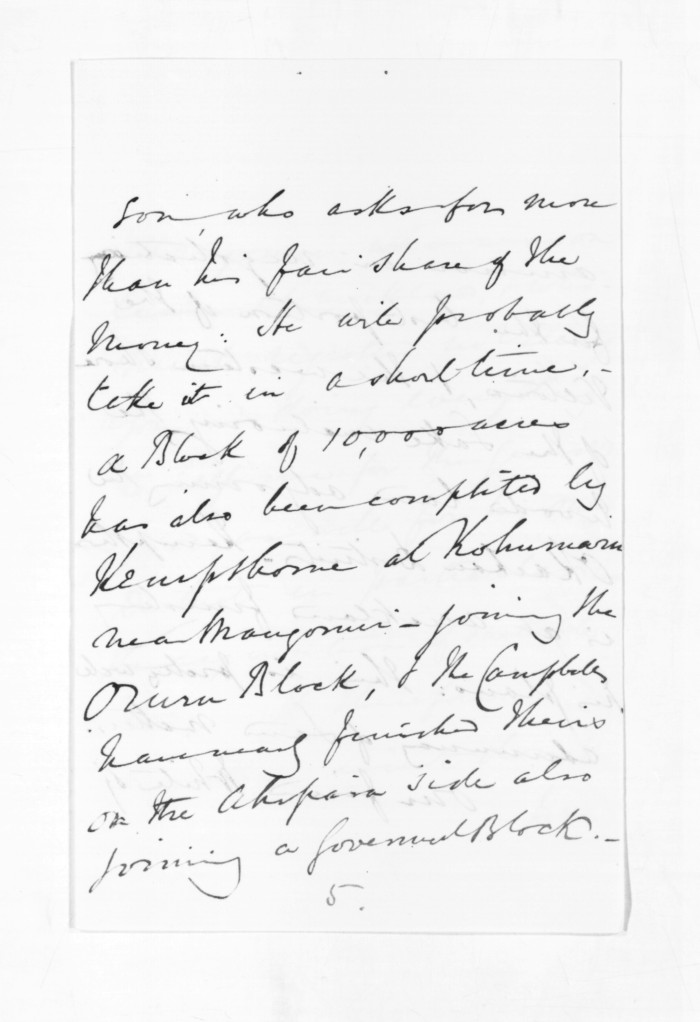 son, who asks for more
than his fair share of the
Money: He will probably
take it in a short time. -
a Block of 10,000 acres
has also been completed by
Kempthorne at Kohumaru
near Mangonui - joining the
Oruru Block, & the Campbells
have nearly finished theirs
on the Ahipara side also
joining a Government Block. -
5.